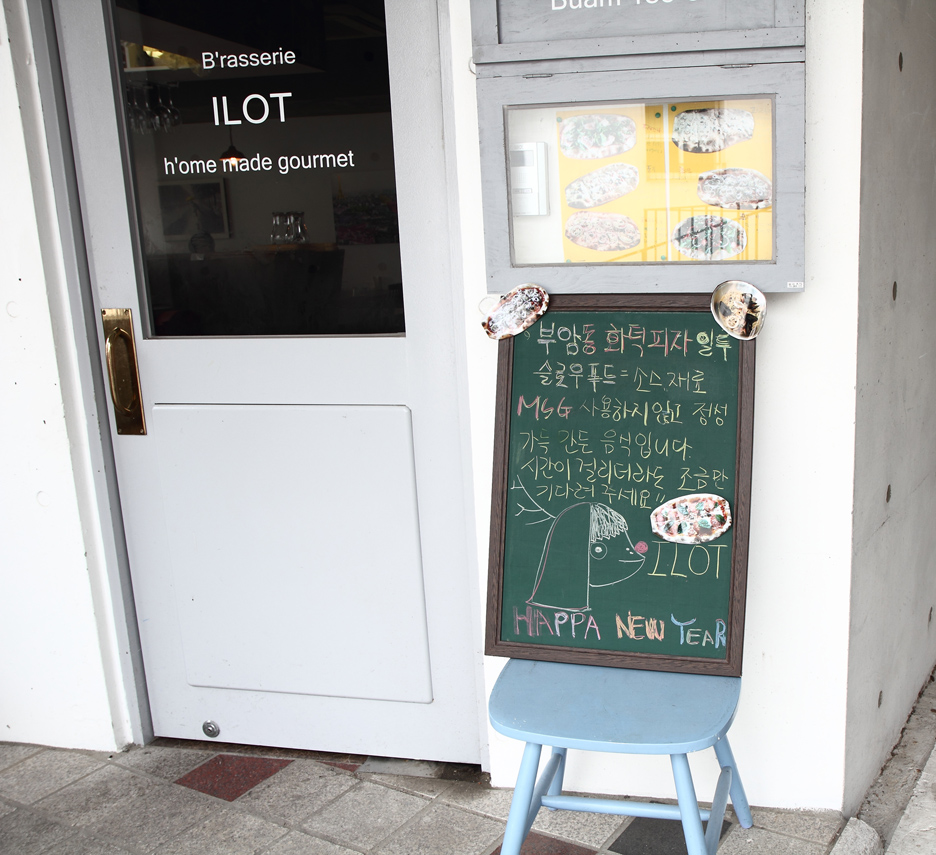 B'rasserie
ILOT
h'ome made gourmet
부암동 화덕피자 일투
슬로우푸드=소스재료
MSG 사용하지않고 정성
가득 간든 음식입니다.
시간이 걸리더라도 조금만
기다려 주세요"
ILOT
HAPPA NEW YEAR